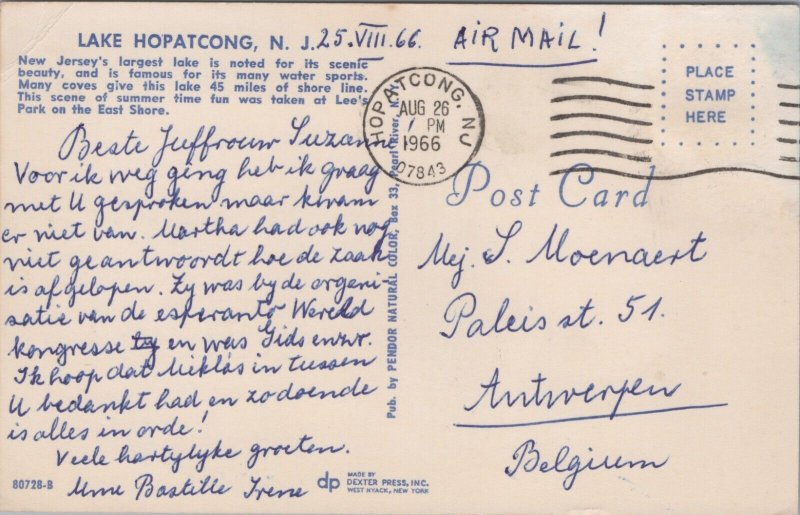 LAKE HOPATCONG, N. J.
New Jersey's largest lake is noted for its scenic
beauty, and is famous for its many water sports.
Many coves give this lake 45 miles of shore line.
This scene of summer time fun was taken at Lee's
Park on the East Shore.
25.VIII.66.
AIR MAIL!
HOPATCONG, NJ
AUG 26
PM
1966
07843
PLACE
STAMP
HERE
Beste Juffrouw Suzanne
Voor ik weg ging heb ik graag
met U gesproken maar kwam
er niet van. Martha had ook nog
niet geantwoordt hoe de zaak
is afgelopen. Zy was by de organi-
satie van de esperanto Wereld
kongresse en was Gids enzw.
Ik hoop dat Miklós in tussen
U bedankt had en zodoende
is alles in orde!
Veele hartylyke groeten.
Mme Bastille Irene
Pub. by PENDOR NATURAL COLOR, Box 33, Pearl River, N.Y.
Post Card
Mej. S. Moenaert
Paleis st. 51.
Antwerpen
Belgium
80728-B
dp
MADE BY
DEXTER PRESS, INC.
WEST NYACK, NEW YORK